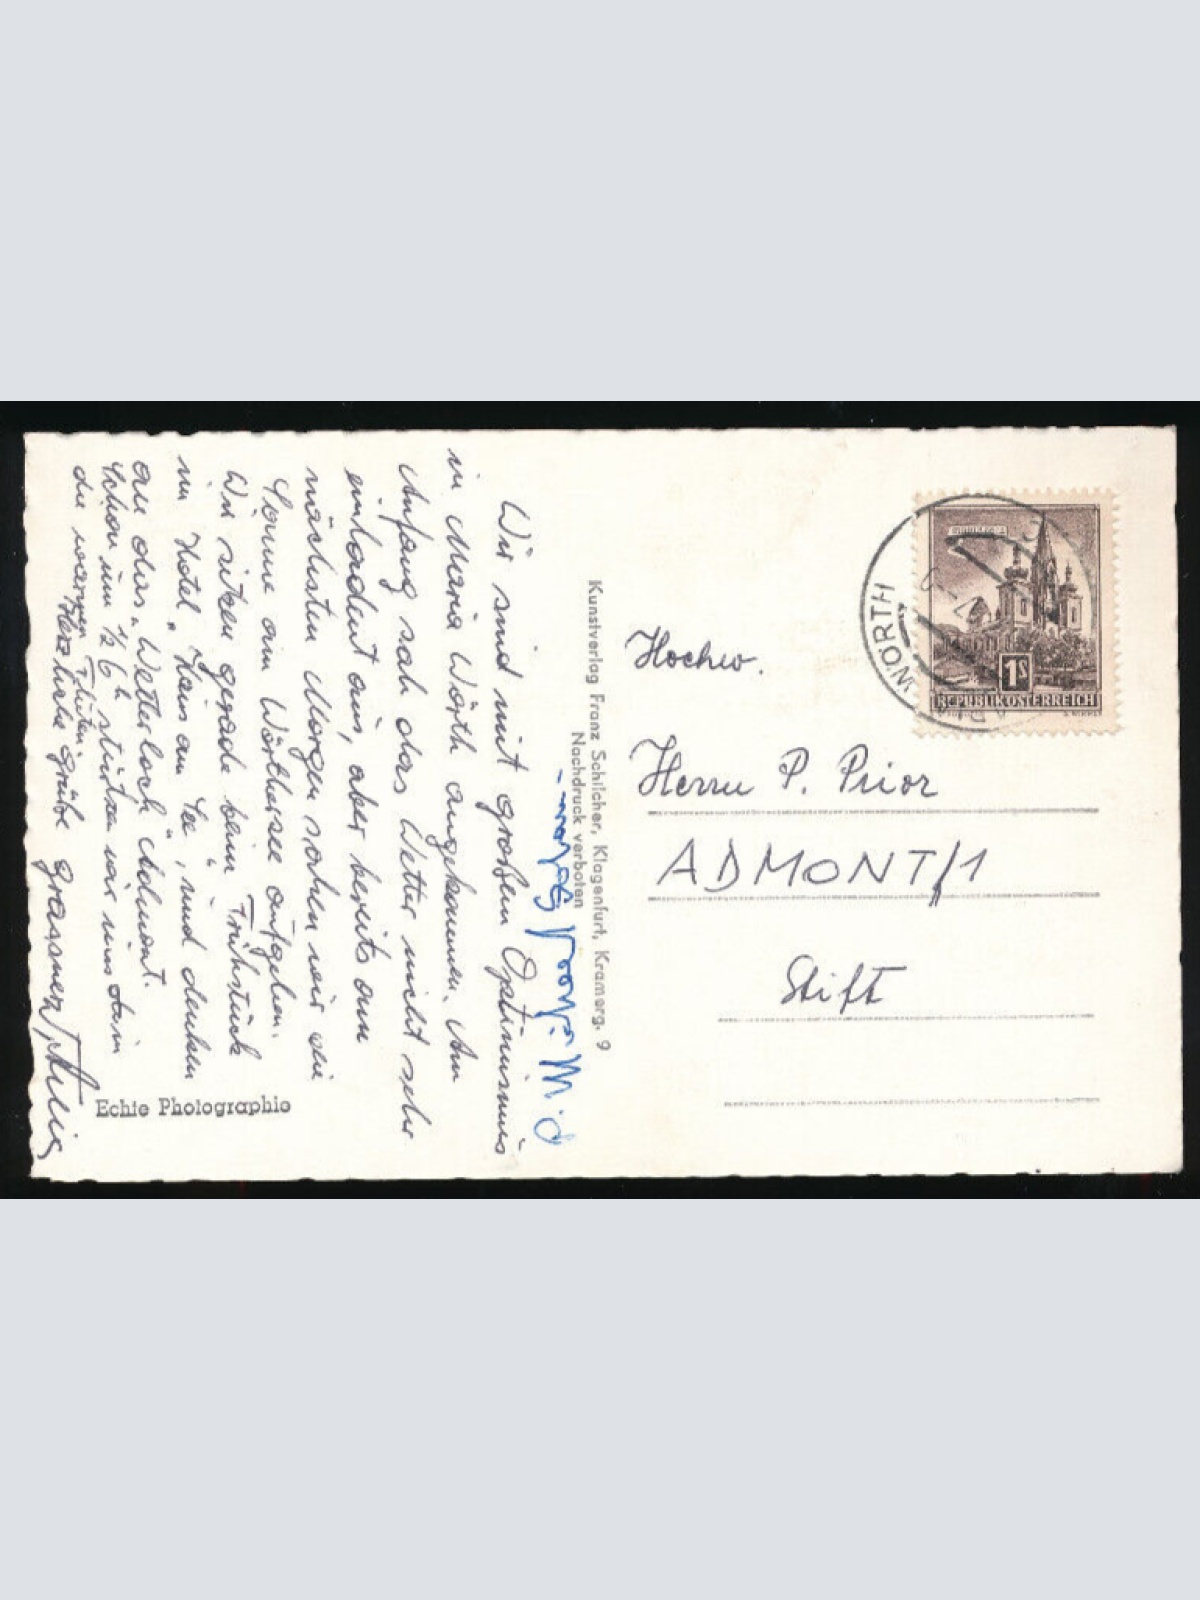 Wir sind mit großem Optimismus
in Maria Wörth angekommen. Am
Anfang sah das Wetter nicht sehr
einladend aus, aber bereits am
nächsten Morgen sahen wir die
Sonne am Wörthersee aufgehen.
Wir sitzen gerade beim Frühstück
im Hotel „Haus am See", und denken
an das „Wetterloch" Admont.
Schon um ½ 6h stürzen wir uns dann in
die warmen Fluten.
Herzliche Grüße
Echte Photographie
Kunstverlag Franz Schilcher, Klagenfurt, Kramerg. 9
Nachdruck verboten
WÖRTH
1S
REPUBLIK ÖSTERREICH
Hochw.
Herrn P. Prior
ADMONT/1
Stift